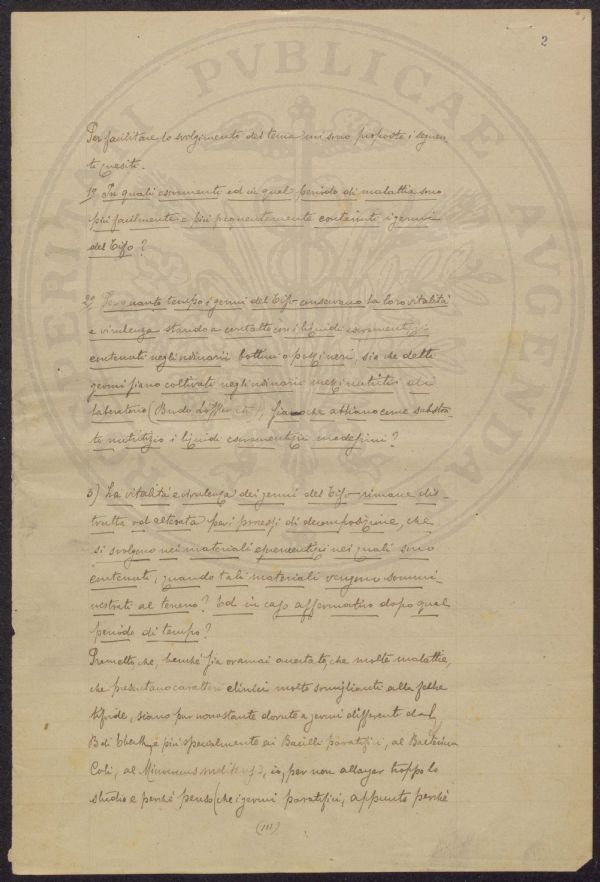 2
Per facilitare lo svolgimento del tema mi sono proposte i seguen
ti quesiti.
1º In quali escrementi ed in qual periodo di malattia sono
più facilmente e più frequentemente contenuti i germi
del Tifo?
2º Per quanto tempo i germi del Tifo conservano la loro vitalità
e virulenza stando a contatto con i liquidi escrementizi
contenuti negli ordinarii bottini o pozzi neri, sia che detti
germi siano coltivati negli ordinarii mezzi nutritivi di
laboratorio (Brodo Löffler etc), sia che abbiano come substra-
to nutritizio i liquidi escrementizi medesimi?
3) La vitalità e virulenza dei germi del Tifo rimane dis-
trutta od alterata per i processi di decomposizione, che
si svolgono nei materiali escrementizi nei quali sono
contenuti, quando tali materiali vengono sommi-
nistrati al terreno? Ed in caso affermativo dopo qual
periodo di tempo?
Premetto che, benché sia oramai accertato, che molte malattie,
che presentano caratteri clinici molto somiglianti alla febbre
tifoide, siano pur nonostante dovute a germi differenti dal
B di Eberth, e più specialmente ai Bacilli paratifici, al Bacterium
Coli, al Micrococcus melitensis, io, per non allargar troppo lo
studio e perché penso che i germi paratifici, appunto perché
(111)
PVBLICAE